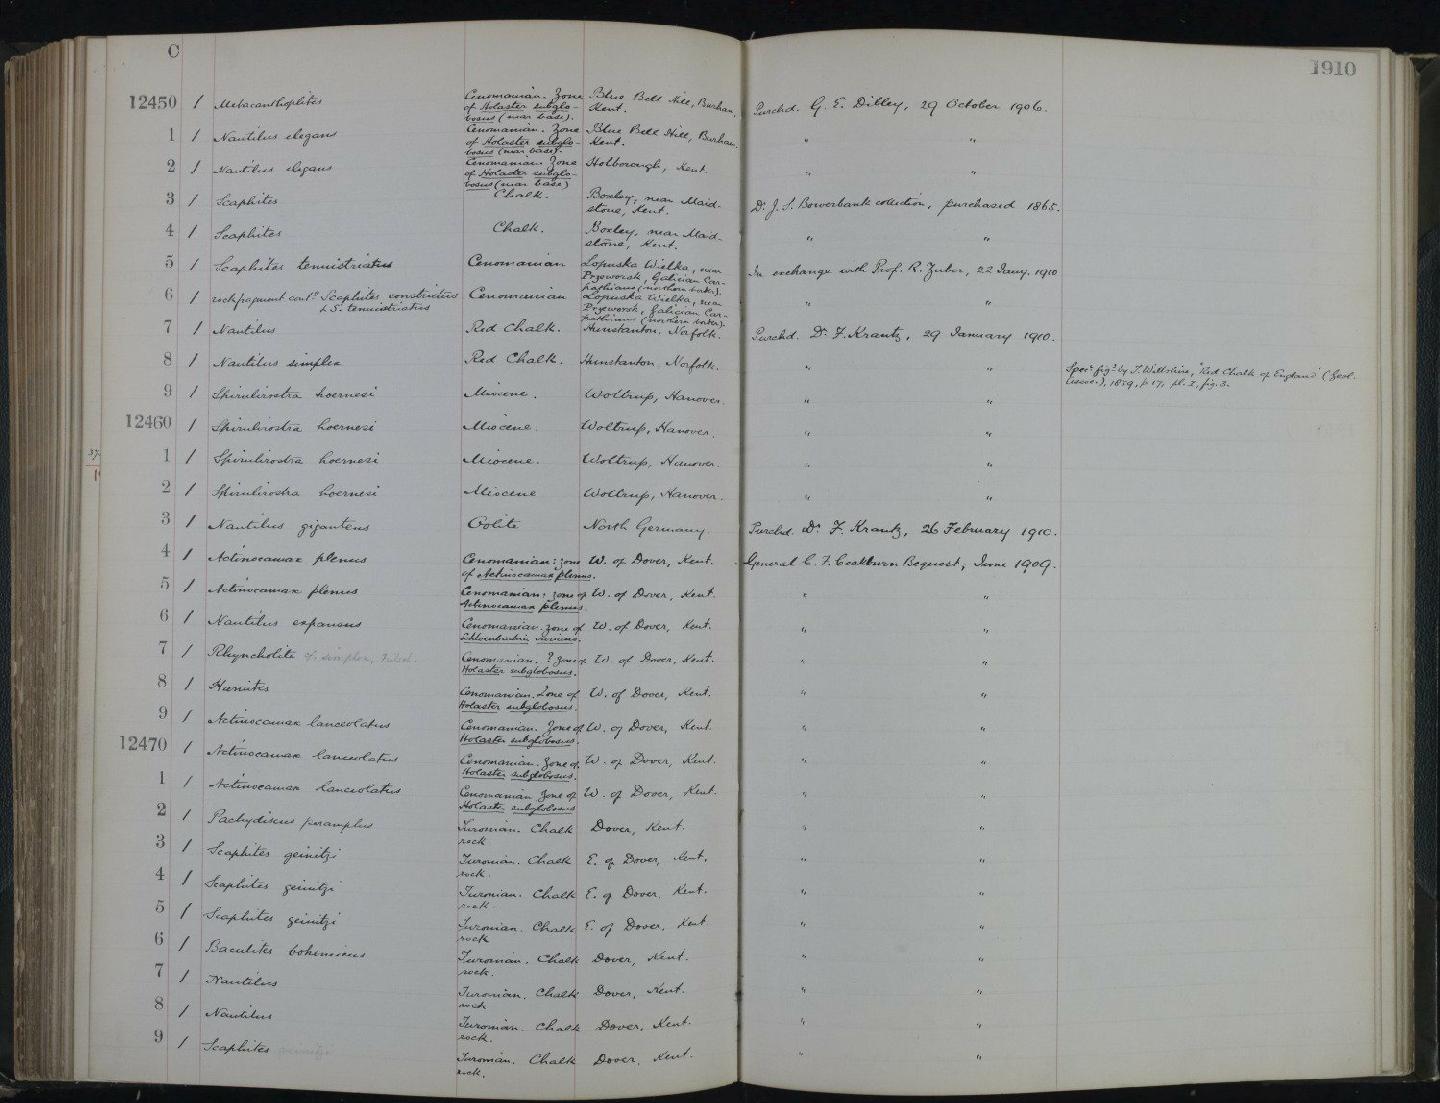 C
1910
12450 1 Metacanthoplites Cenomanian. Zone of Holaster subglobosus (near base). Blue Bell Hill, Burham, Kent. Purchd. G. E. Dibley, 29 October 1906.
1 1 Nautilus elegans Cenomanian. Zone of Holaster subglobosus (near base). Blue Bell Hill, Burham, Kent. " "
2 1 Nautilus elegans Cenomanian. Zone of Holaster subglobosus (near base) Holborough, Kent. " "
3 1 Scaphites Chalk. Boxley, near Maidstone, Kent. Dr. J. S. Bowerbank collection, purchased 1865.
4 1 Scaphites Chalk. Boxley, near Maidstone, Kent. " "
5 1 Scaphites tenuistriatus Cenomanian Lopuska Wielka, near Przeworsk, Galician Carpathians (northern border). In exchange with Prof. R. Zuber, 22 Jany. 1910
6 1 rock fragment contg. Scaphites constrictus & S. tenuistriatus Cenomanian Lopuska Wielka, near Przeworsk, Galician Carpathians (northern border). " "
7 1 Nautilus Red Chalk. Hunstanton. Norfolk. Purchd. Dr. F. Krantz, 29 January 1910.
8 1 Nautilus simplex Red Chalk. Hunstanton. Norfolk. " " Specn. figd. by T. Wiltshire, "Red Chalk of England" (Geol. Assoc.), 1859, p. 17, pl. 2, fig. 3.
9 1 Spirulirostra hoernesi Miocene. Woltrup, Hanover. " "
12460 1 Spirulirostra hoernesi Miocene. Woltrup, Hanover. "
1 1 Spirulirostra hoernesi Miocene. Woltrup, Hanover. " "
2 1 Spirulirostra hoernesi Miocene Woltrup, Hanover. " "
3 1 Nautilus giganteus Oolite North Germany. Purchd. Dr. F. Krantz, 26 February 1910.
4 1 Actinocamax plenus Cenomanian: zone of Actinocamax plenus. W. of Dover, Kent. General C. F. Cockburn Bequest, June 1909.
5 1 Actinocamax plenus Cenomanian: zone of Actinocamax plenus W. of Dover, Kent. " "
6 1 Nautilus expansus Cenomanian. zone of Schloenbachia varians. W. of Dover, Kent. " "
7 1 Rhyncholite cf. simplex, Cenomanian. ? zone of Holaster subglobosus. W. of Dover, Kent. " "
8 1 Hamites Cenomanian. Zone of Holaster subglobosus. W. of Dover, Kent. " "
9 1 Actinocamax lanceolatus Cenomanian. Zone of Holaster subglobosus. W. of Dover, Kent. " "
12470 1 Actinocamax lanceolatus Cenomanian. Zone of Holaster subglobosus. W. of Dover, Kent. " "
1 1 Actinocamax lanceolatus Cenomanian Zone of Holaster subglobosus W. of Dover, Kent. " "
2 1 Pachydiscus peramplus Turonian. Chalk rock Dover, Kent. " "
3 1 Scaphites geinitzi Turonian. Chalk rock. E. of Dover, Kent. " "
4 1 Scaphites geinitzi Turonian. Chalk rock. E. of Dover, Kent. " "
5 1 Scaphites geinitzi Turonian. Chalk rock E. of Dover, Kent " "
6 1 Baculites bohemicus Turonian. Chalk rock. Dover, Kent. " "
7 1 Nautilus Turonian. Chalk rock Dover, Kent. " "
8 1 Nautilus Turonian. Chalk rock. Dover, Kent. " "
9 1 Scaphites geinitzi Turonian. Chalk rock. Dover, Kent. " "